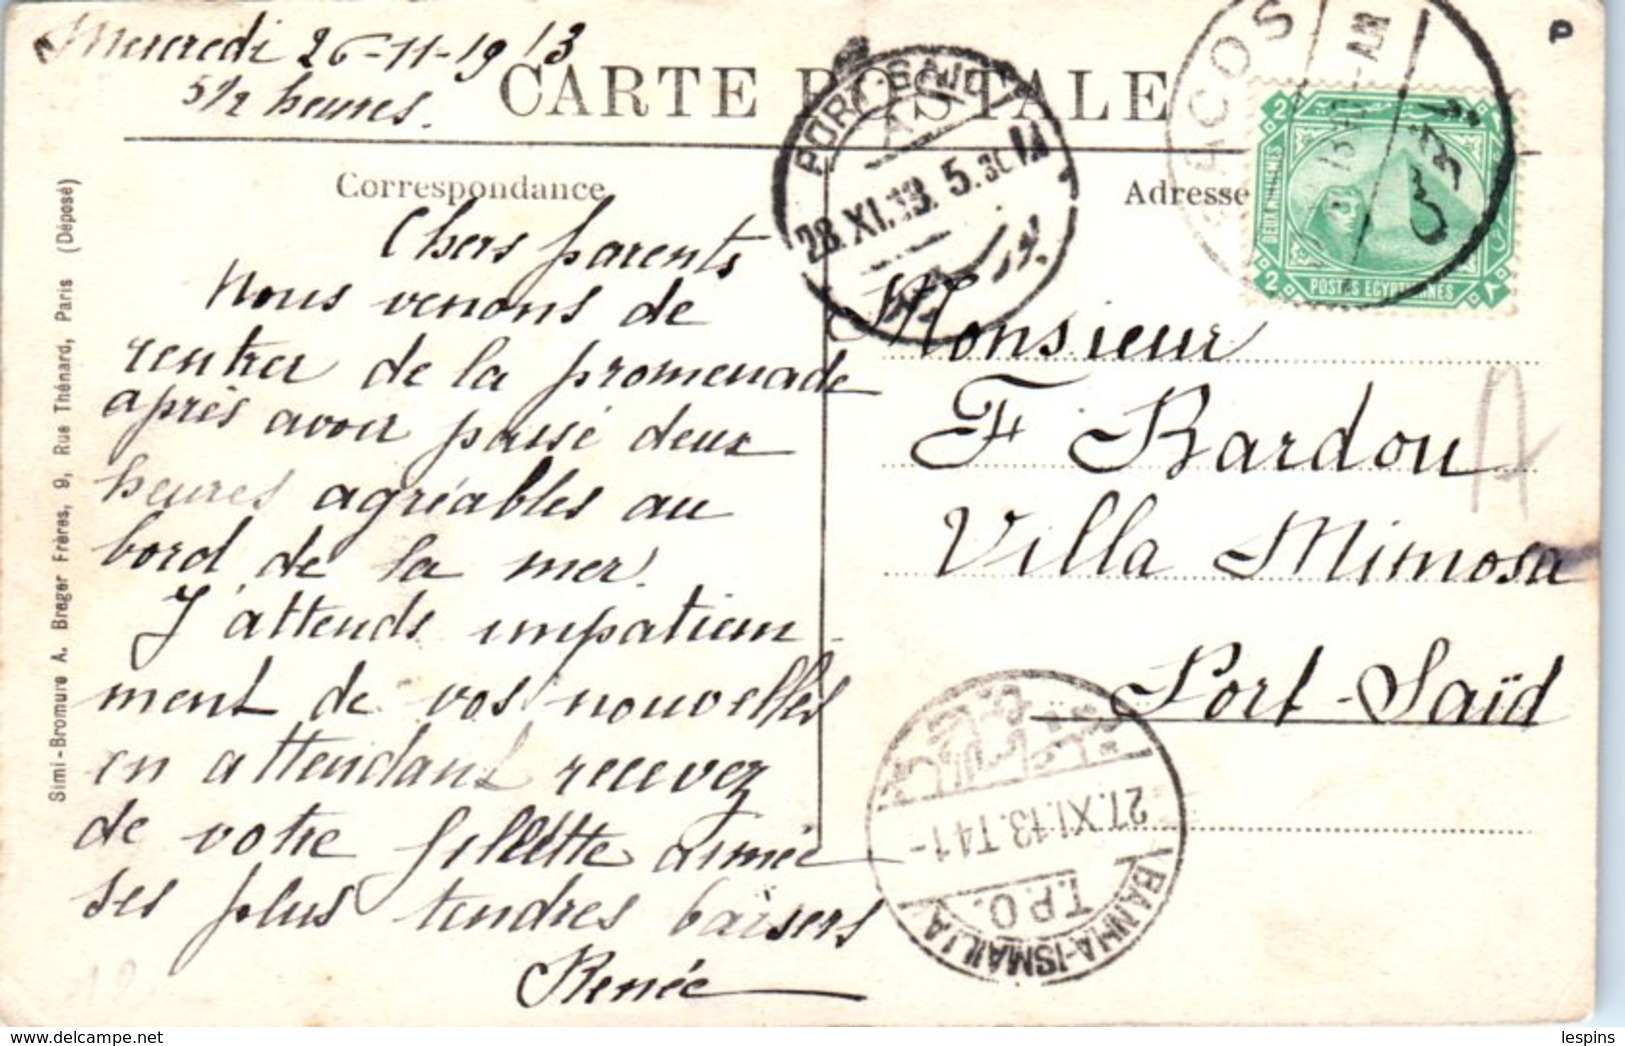 Mercredi 26-11-1913
5 1/2 heures.
CARTE POSTALE
Correspondance
Chers parents
Nous venons de
rentrer de la promenade
après avoir passé deux
heures agréables au
bord de la mer.
J'attends impatiem-
ment de vos nouvelles
en attendant recevez
de votre fillette aimée
ses plus tendres baisers
Renée
Adresse
Monsieur
F Bardou
Villa Mimosa
Port-Saïd
PORT-SAID
28.XI.13. 5.30
بور سعيد
2 DEUX MILLIEMES 2
POSTES EGYPTIENNES
BANHA-ISMAILIA
T.P.O.
27.XI.13.T41-
Simi-Bromure A. Breger Frères, 9, Rue Thénard, Paris (Déposé)
A
P
lespins
https://www.delcampe.net